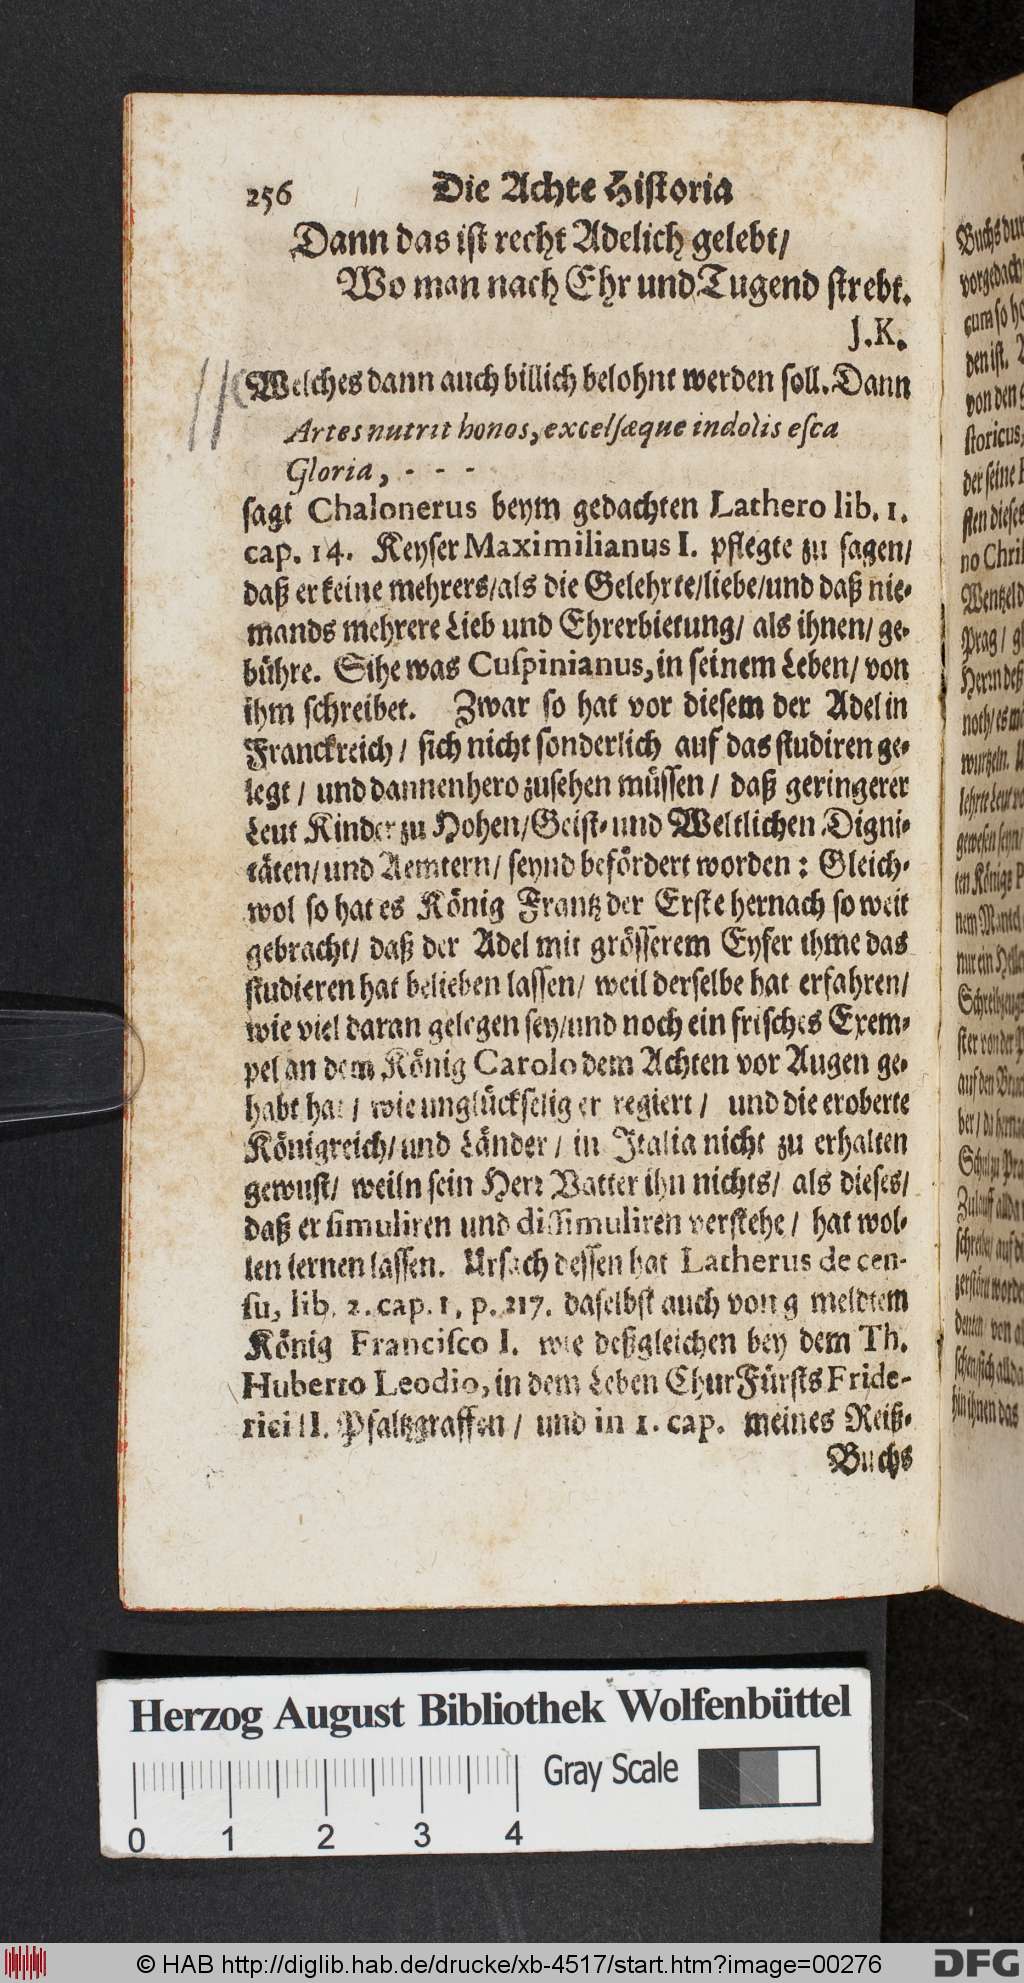 256 Die Achte Historia
Dann das ist recht Adelich gelebt/
Wo man nach Ehr und Tugend strebt.
J.K.
Welches dann auch billich belohnt werden soll. Dann
Artes nutrit honos, excelsæque indolis esca
Gloria, - - -
sagt Chalonerus beym gedachten Lathero lib. 1.
cap. 14. Keyser Maximilianus I. pflegte zu sagen/
daß er keine mehrers/als die Gelehrte/liebe/und daß nie-
mands mehrere Lieb und Ehrerbietung/ als ihnen/ ge-
bühre. Sihe was Cuspinianus, in seinem Leben/ von
ihm schreibet. Zwar so hat vor diesem der Adel in
Franckreich/ sich nicht sonderlich auf das studiren ge-
legt / und dannenhero zusehen müssen/ daß geringerer
Leut Kinder zu Hohen/Geist- und Weltlichen Digni-
täten/ und Aemtern/ seynd befördert worden: Gleich-
wol so hat es König Frantz der Erste hernach so weit
gebracht/ daß der Adel mit grösserem Eyfer ihme das
studieren hat belieben lassen/ weil derselbe hat erfahren/
wie viel daran gelegen sey/und noch ein frisches Exem-
pel an dem König Carolo dem Achten vor Augen ge-
habt hat/ wie unglückselig er regiert/ und die eroberte
Königreich/ und Länder/ in Italia nicht zu erhalten
gewust/ weiln sein Herr Vatter ihn nichts/ als dieses/
daß er simuliren und dissimuliren verstehe/ hat wol-
len lernen lassen. Ursach dessen hat Latherus de cen-
su, lib. 2. cap. 1. p. 217. daselbst auch von gemeldtem
König Francisco I. wie deßgleichen bey dem Th.
Huberto Leodio, in dem Leben ChurFürsts Fride-
rici II. Pfaltzgraffen/ und in 1. cap. meines Reiß-
Buchs
Herzog August Bibliothek Wolfenbüttel
Gray Scale
0 1 2 3 4
© HAB http://diglib.hab.de/drucke/xb-4517/start.htm?image=00276
DFG